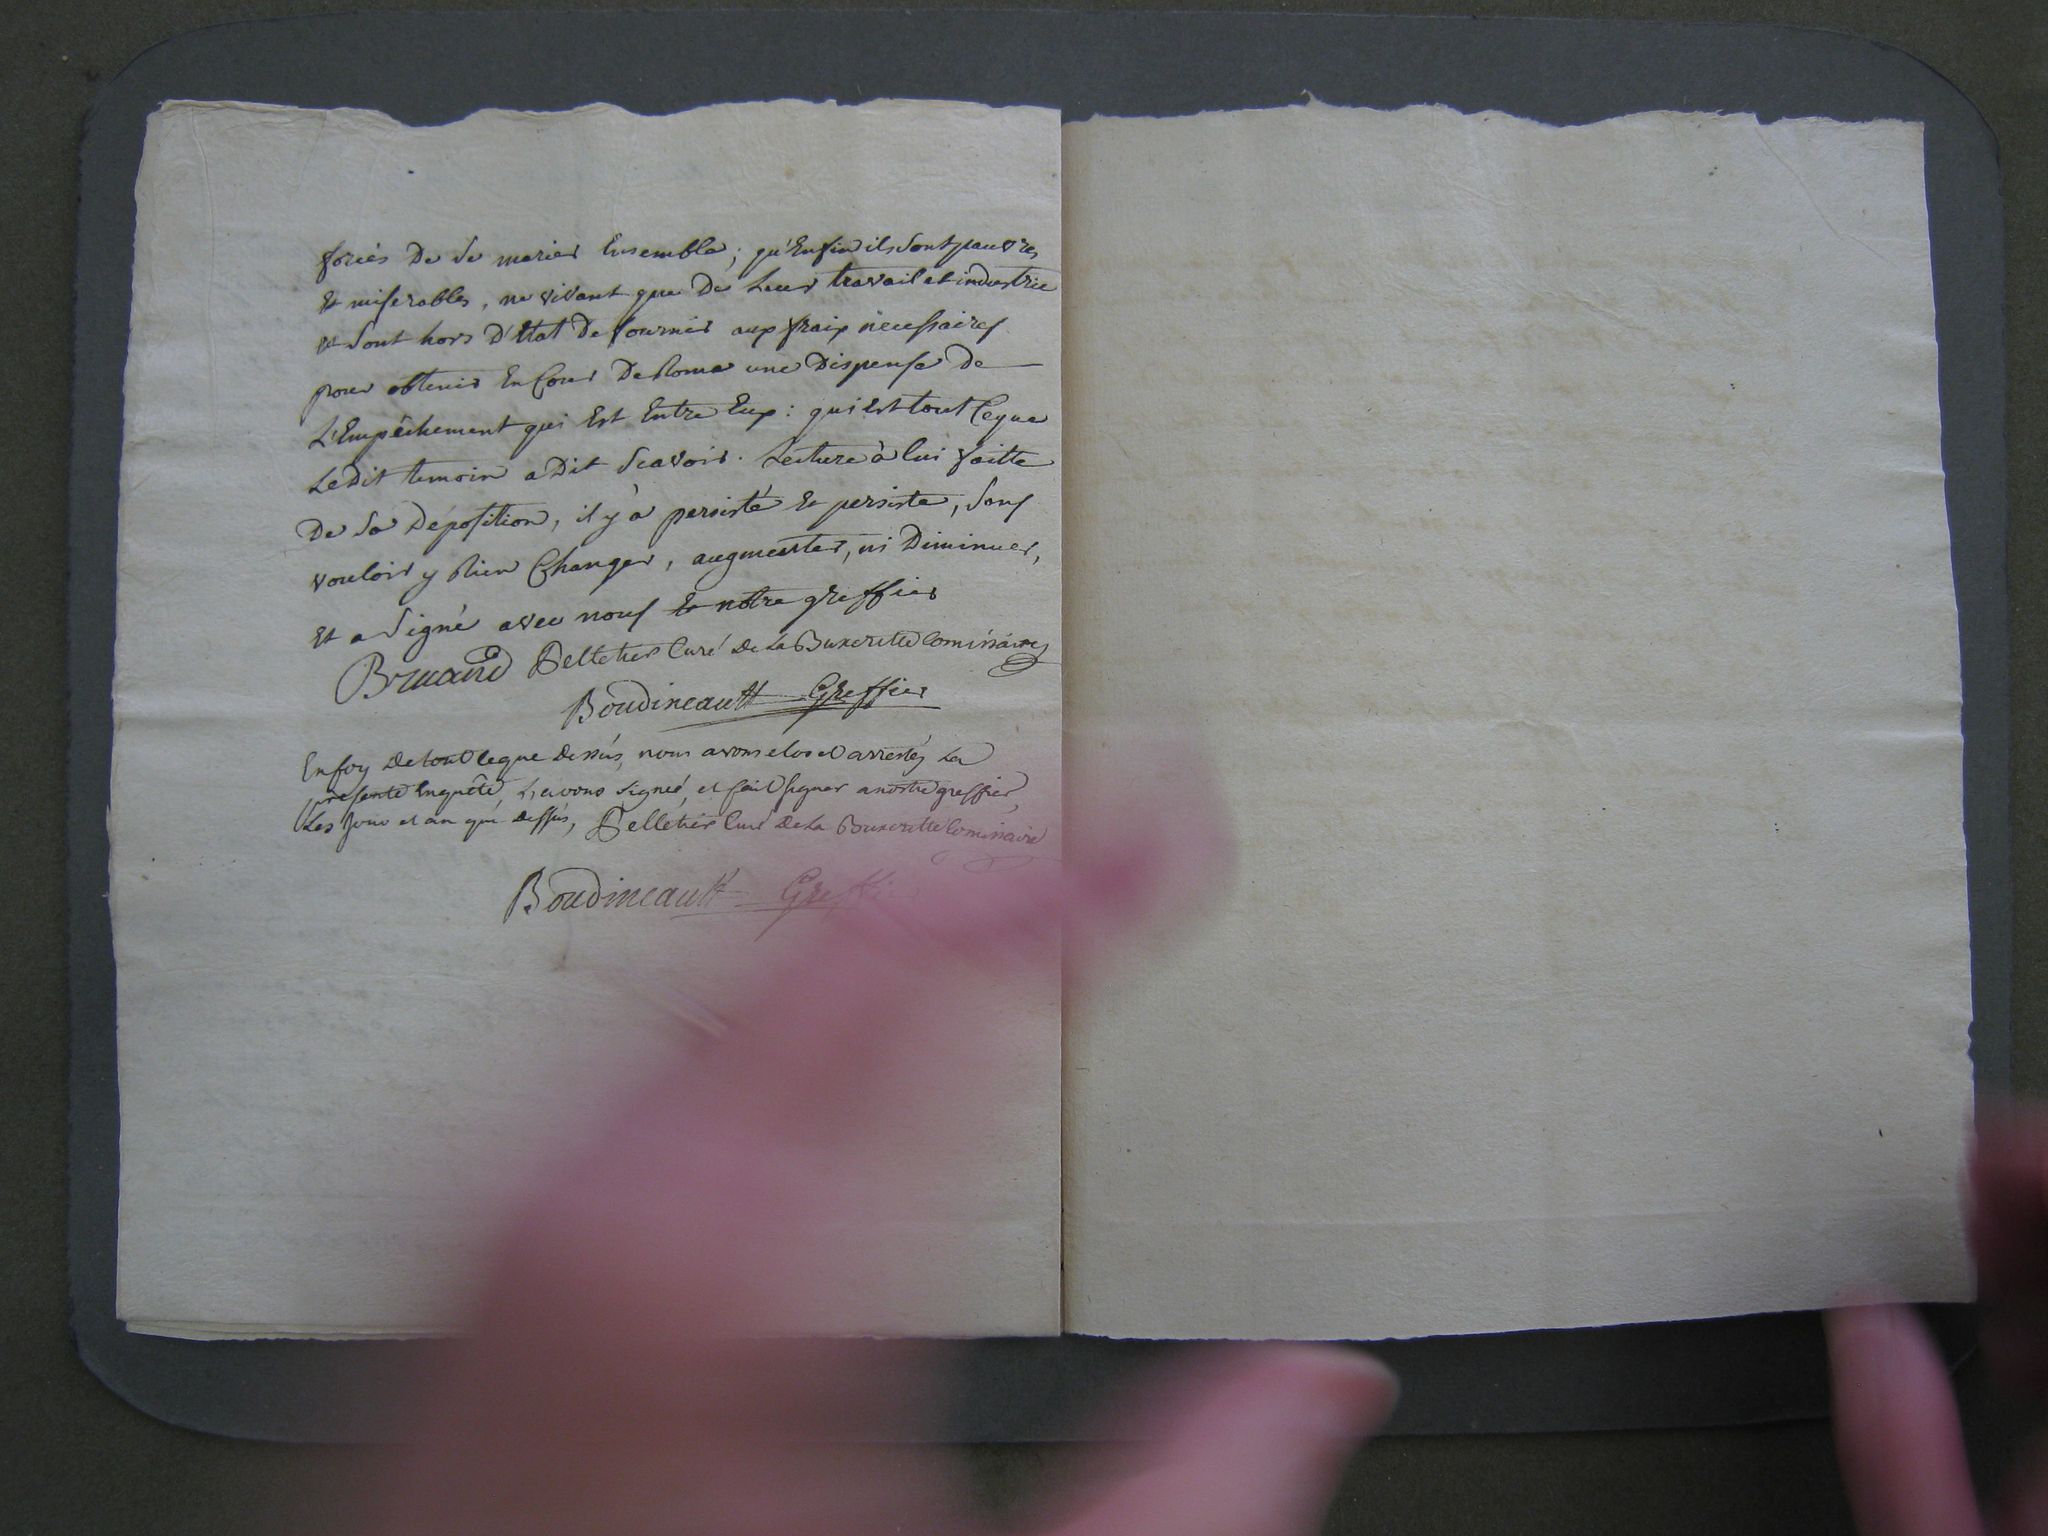 forcés De Se marier Ensemble; qu'Enfin ils Sont pauvres
Et miserables, ne vivant que De Leur travail et industrie
et Sont hors D'Etat De fournir aux fraix necessaires
pour obtenir En Cour De Rome une Dispense De
L'Empêchement qui Est Entre Eux: qui est tout Ceque
Ledit temoin a Dit Scavoir. Lecture à lui faitte
De Sa Déposition, il y à persisté Et persiste, Sans
vouloir y Rien Changer, augmenter, ni Diminuer,
Et a Signé avec nous Et notre greffier
Bruand Pelletier Curé De La Buxerette Comissaire
Boudineault Greffier
En foy de tout ceque Dessus, nous avons clos et arrestés La
presente Enquête, L'avons signée, et fait signer a nostre greffier,
Les Jour et an que dessus, Pelletier Curé De La Buxerette Comissaire
Boudineault Greffier